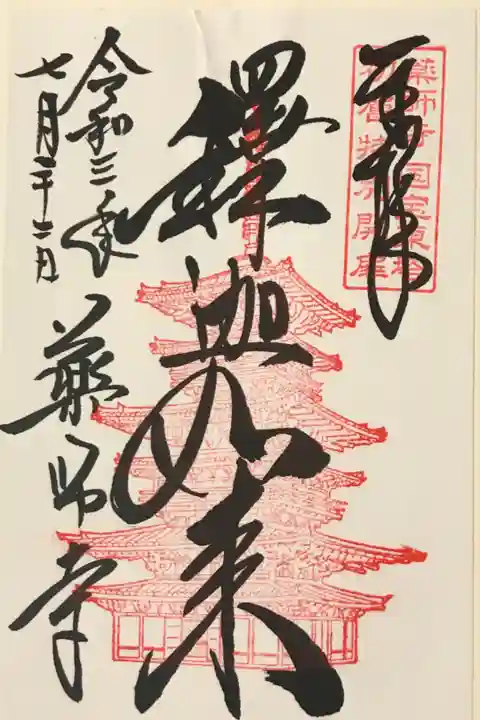 奉拝
薬師寺国宝東塔
初層特別開扉
釋迦如来
令和三年
七月二十二日
薬師寺